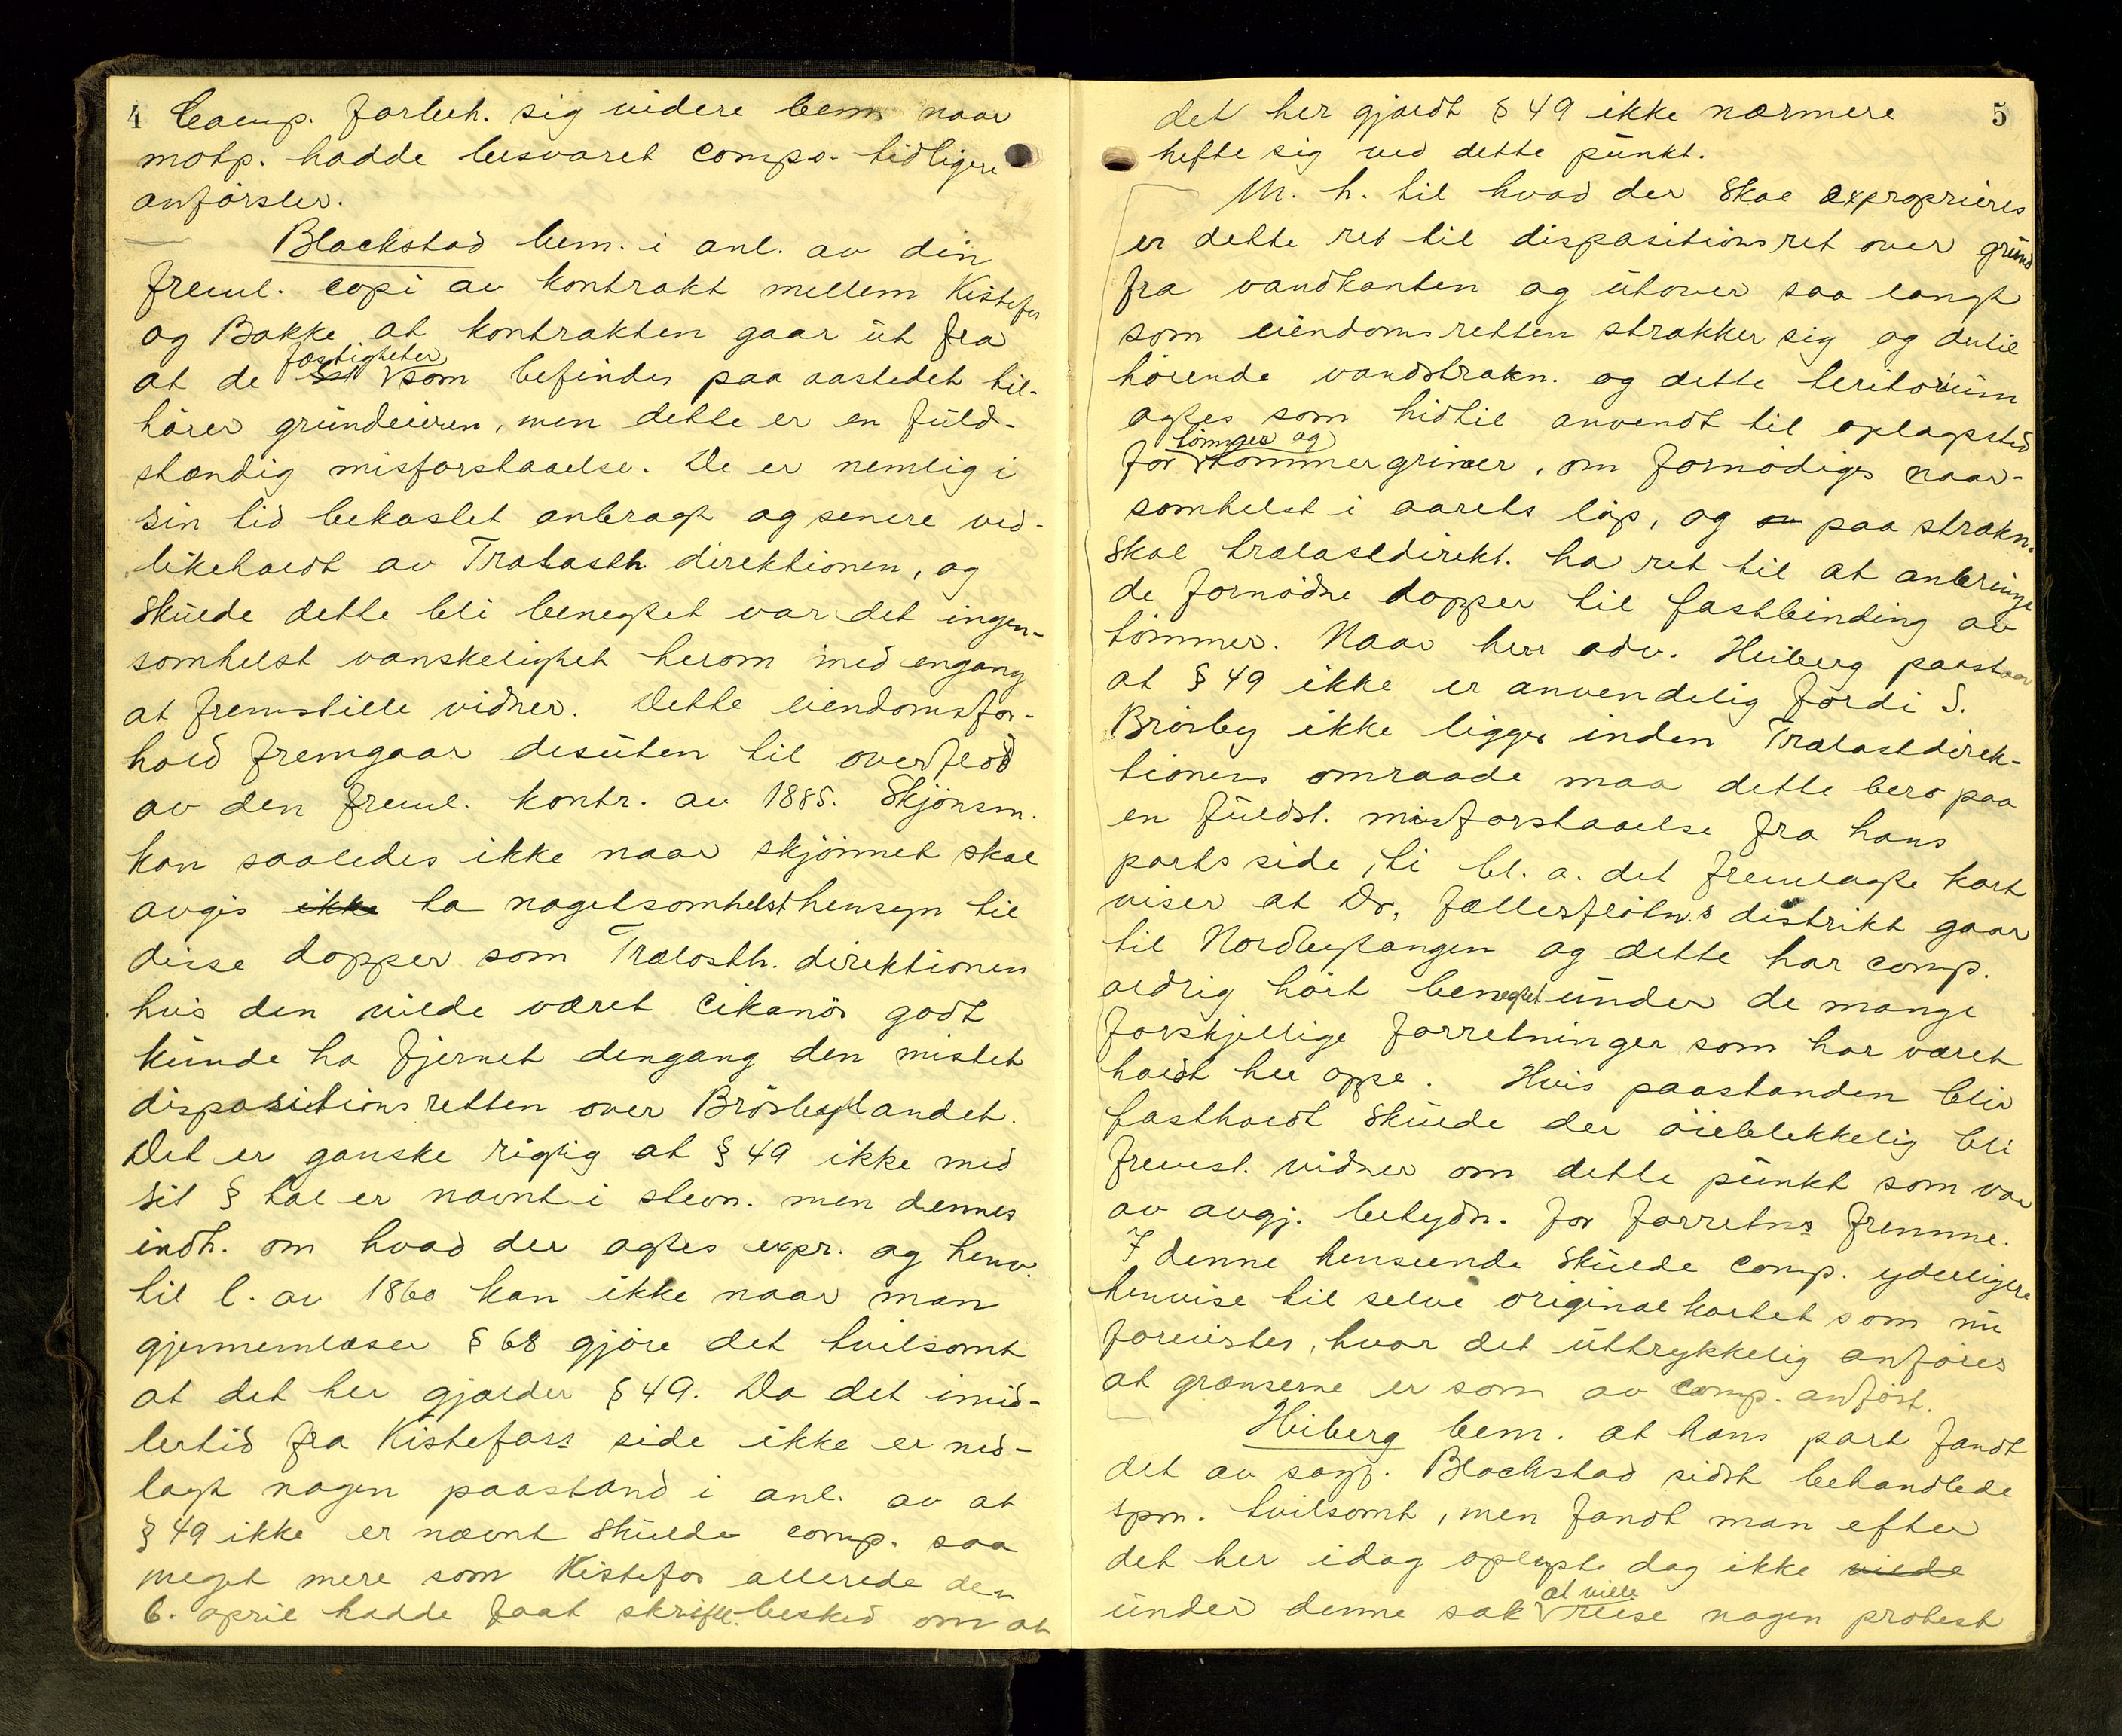 4
Comp. forbeh. sig videre bem naar
motp. hadde besvaret comps. tidligere
anførsler.
Blackstad bem. i anl. av din
freml. copi av kontrakt mellem Kistefos
og Bakke at kontrakten gaar ut fra
fastigheter
at de som befindes paa aastedet til-
hører grundeieren, men dette er en fuld-
stændig misforstaaelse. De er nemlig i
sin tid bekostet anbragt og senere ved-
likeholdt av Trælasth direktionen, og
skulde dette bli benegtet var det ingen-
somhelst vanskelighet herom med engang
at fremstille vidner. Dette eiendomsfor-
hold fremgaar desuten til overflod
av den freml. kontr. av 1885. Skjönsm.
kan saaledes ikke naar skjönnet skal
avgis ikke ta nogetsomhelst hensyn til
disse dopper som Trælasth. direktionen
hvis den vilde været cikanös godt
kunde ha fjernet dengang den mistet
dispositionsretten over Brörbylandet.
Det er ganske rigtig at § 49 ikke med
sit § tal er nævnt i stevn. men dennes
indh. om hvad der agtes expr. og henv.
til l. av 1860 kan ikke naar man
gjennemlæser § 68 gjöre det tvilsomt
at det her gjælder § 49. Da det imid-
lertid fra Kistefoss side ikke er ned-
lagt nogen paastand i anl. av at
§ 49 ikke er nævnt skulde comp. saa
meget mere som Kistefos allerede den
6. april hadde faat skriftl. besked om at
5
det her gjaldt § 49 ikke nærmere
hefte sig ved dette punkt.
M. h. til hvad der skal exproprieres
er dette ret til dispositionsret over grund
fra vandkanten og utover saa langt
som eiendomsretten strækker sig og dertil
hörende vandstrækn. og dette teritorium
agtes som hidtil anvendt til oplagsted
tömmer og
for tömmergrimer, om fornödiges naar-
somhelst i aarets löp, og paa strækn.
skal trælastdirekt. ha ret til at anbringe
de fornödne dopper til fastbinding av
tömmer. Naar herr adv. Heiberg paastaar
at § 49 ikke er anvendelig fordi S.
Brörby ikke ligger inden Trælastdirek-
tionens omraade maa dette bero paa
en fuldst. misforstaaelse fra hans
parts side, ti bl. a. det fremlagte kart
viser at Dr. Fællesflötn.s distrikt gaar
til Nordbytangen og dette har comp.
aldrig hört benegtet under de mange
forskjellige forretninger som har været
holdt her oppe. Hvis paastanden blir
fastholdt skulde der öieblikkelig bli
fremst. vidner om dette punkt som var
av avgj. betydn. for forretns fremme.
I denne henseende skulde comp. yderligere
henvise til selve originalkartet som nu
forevistes, hvor det uttrykkelig anföres
at grænserne er som av comp. anfört.
Heiberg bem. at hans part fandt
det av sagf. Blackstad sidst behandlede
spm. tvilsomt, men fandt man efter
det her idag oplyste dog ikke vilde
at ville
under denne sak reise nogen protest